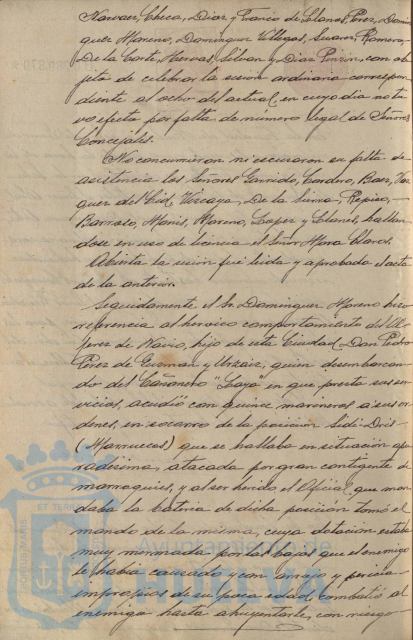 Narvaez, Checa, Diaz y Franco de Llanos, Perez, Domin
guez Moreno, Dominguez Villegas, Suarez, Romero,
De la Corte, Hervas, Silvan y Diaz Pinzón, con ob
jeto de celebrar la sesión ordinaria correspon
diente al ocho del actual, en cuyo dia no tu
vo efecto por falta de número legal de Señores
Concejales.
No concurrieron ni excusaron su falta de
asistencia los Señores Garrido, Cordero, Baez, Vaz
quez del Cid, Vizcaya, De la Lima, Repiso,
Barroso, Monis, Moreno, Lopez y Llanes, hallan
dose en uso de licencia el Señor Mora Claros.
Abierta la sesión fué leida y aprobada el acta
de la anterior.
Seguidamente el Sr. Dominguez Moreno hizo
referencia al heroico comportamiento del Al
ferez de Navio, hijo de esta Ciudad, Don Pedro
Perez de Guzman y Urzaiz, quien desembarcan
do del Cañonero "Laya" en que presta sus ser
vicios, acudió con quince marineros a sus or
denes, en socorro de la posición Sidi-Dris
(Marruecos) que se hallaba en situación apu
radisima, atacada por gran contigente de
marroquies, y al ser herido el Oficial que man
daba la bateria de dicha posicion tomó el
mando de la misma, cuya dotación estaba
muy mermada por las bajas que el enemigo
le habia causado y con arrojo y pericia
impropios de su poca edad, combatió al
enemigo hasta ahuyentarle, con riesgo
ET TERRAE
PORTUS MARIS
HUELVA